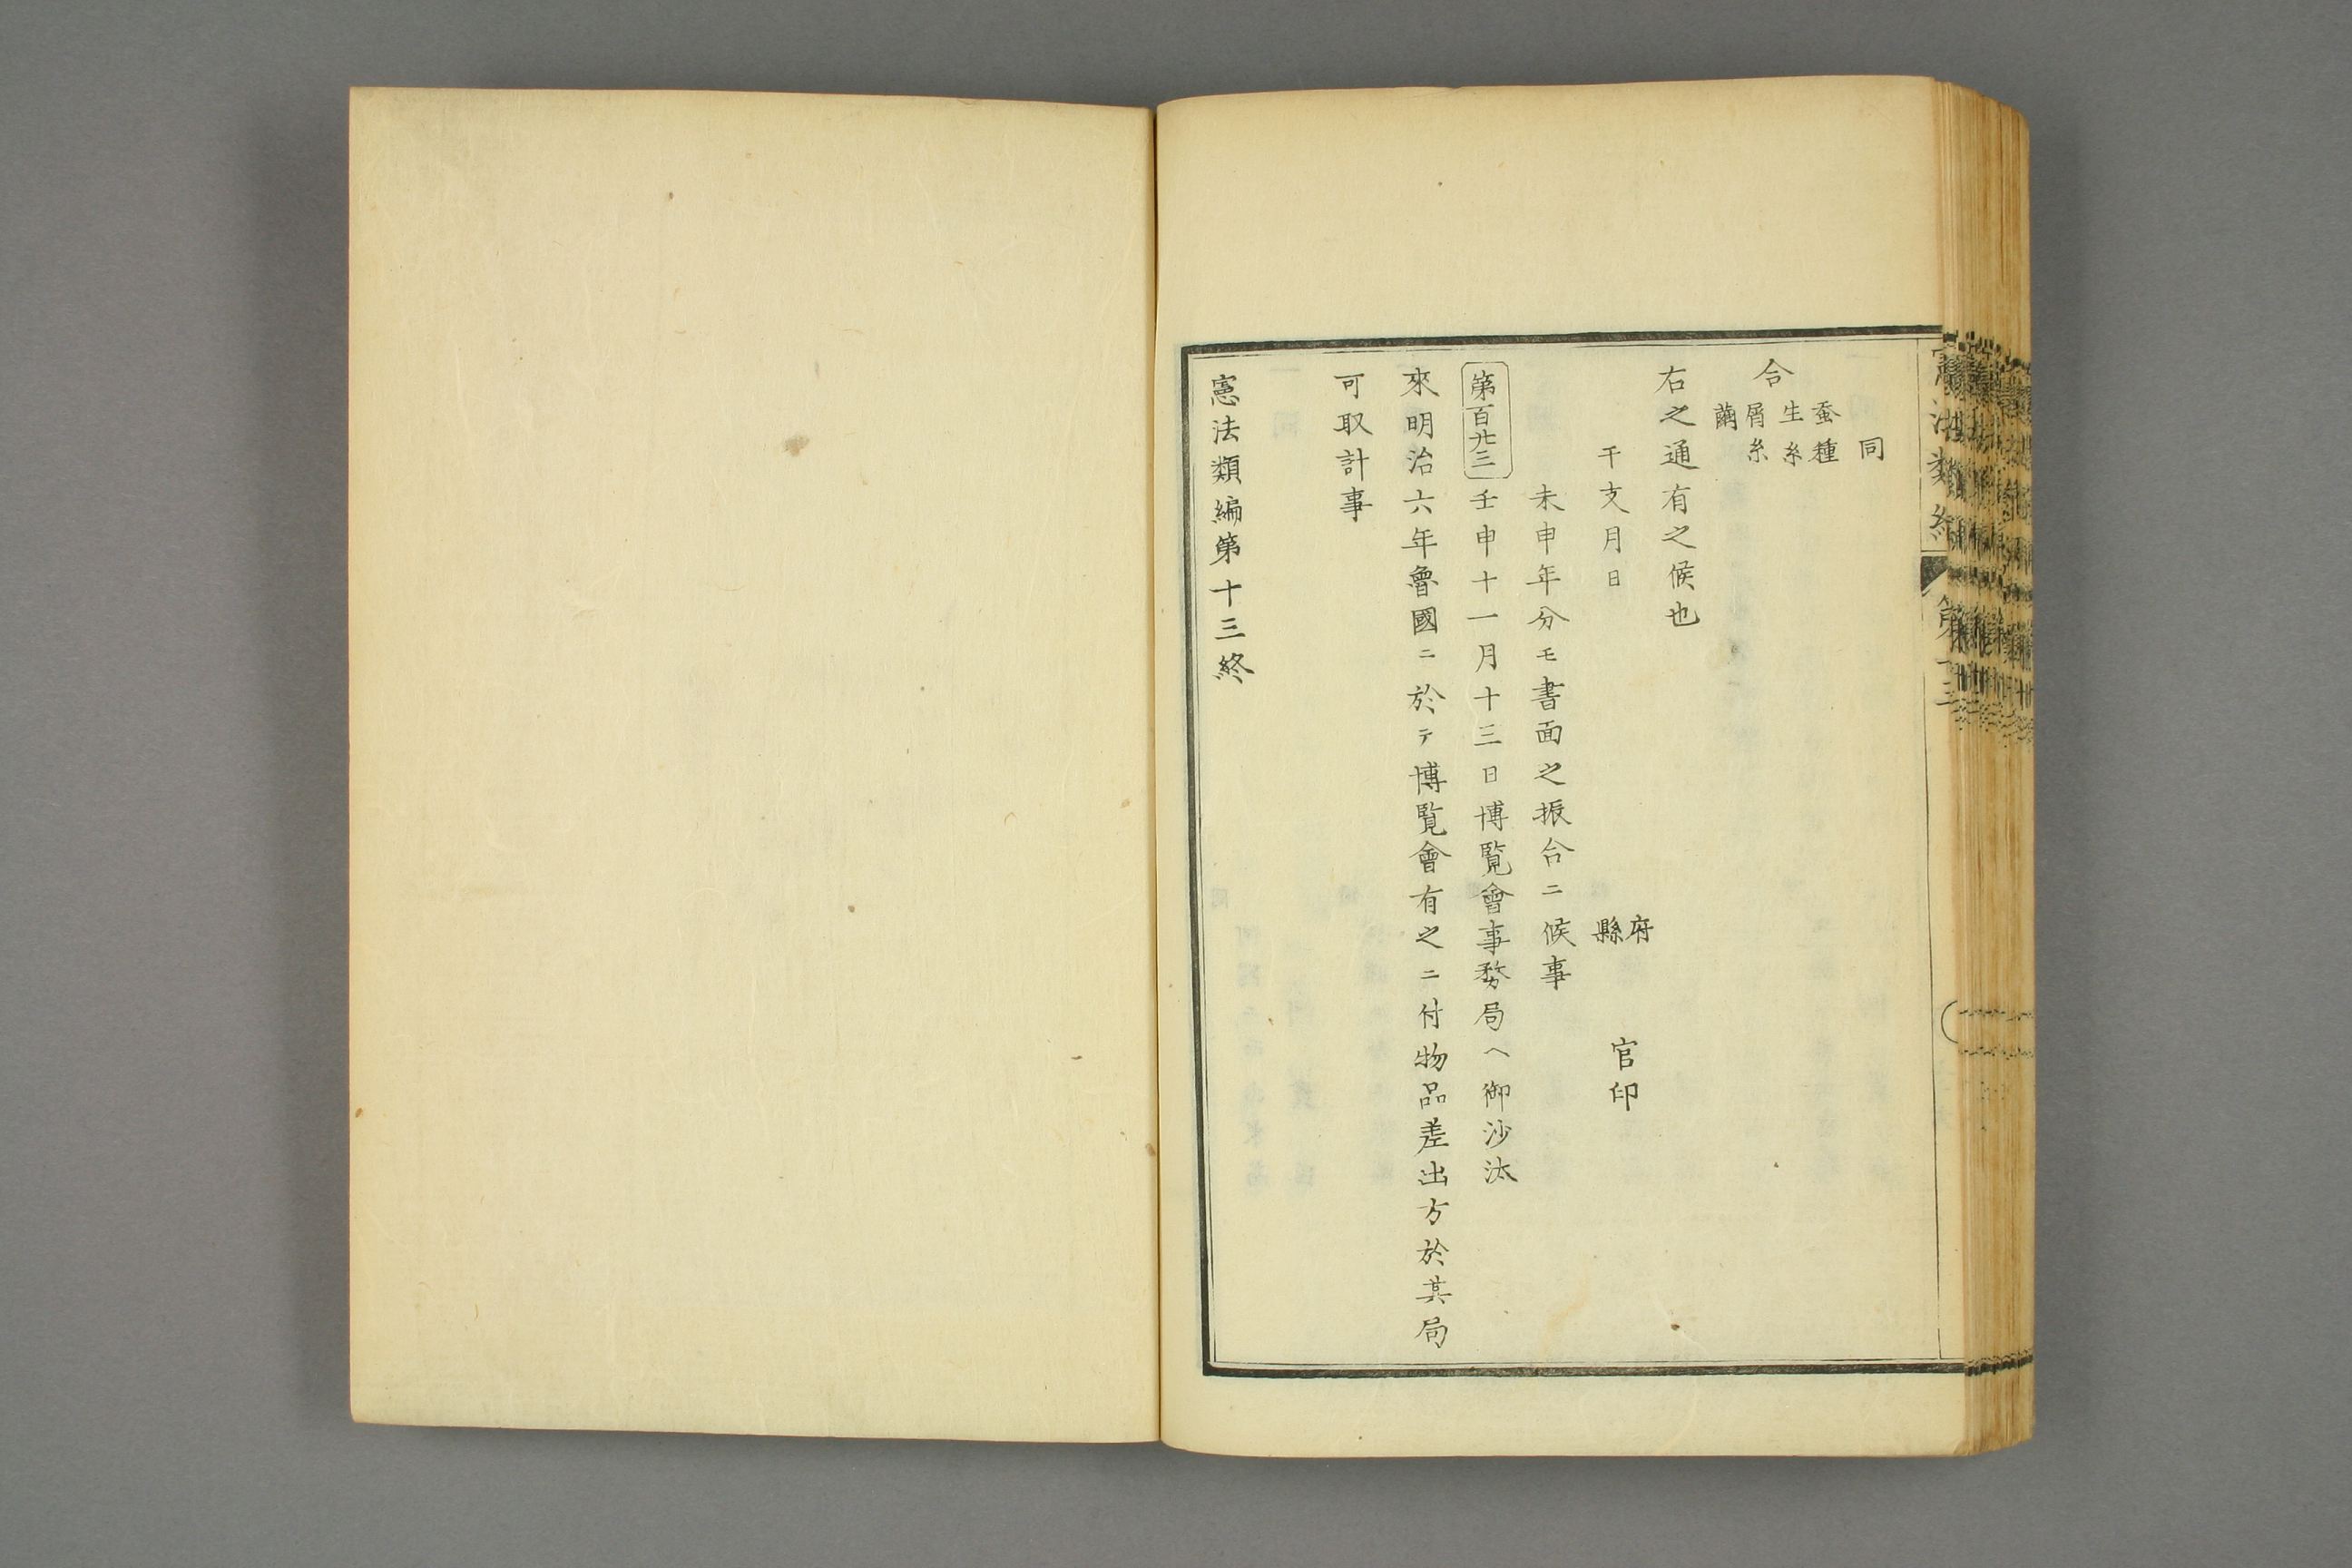 同
合
蚕種
生糸
屑糸
繭
右之通有之候也
干支月日
府
縣
官印
未申年分モ書面之振合ニ候事
第百廿三
壬申十一月十三日博覧會事務局ヘ御沙汰
來明治六年魯國ニ於テ博覧會有之ニ付物品差出方於其局
可取計事
憲法類編第十三終